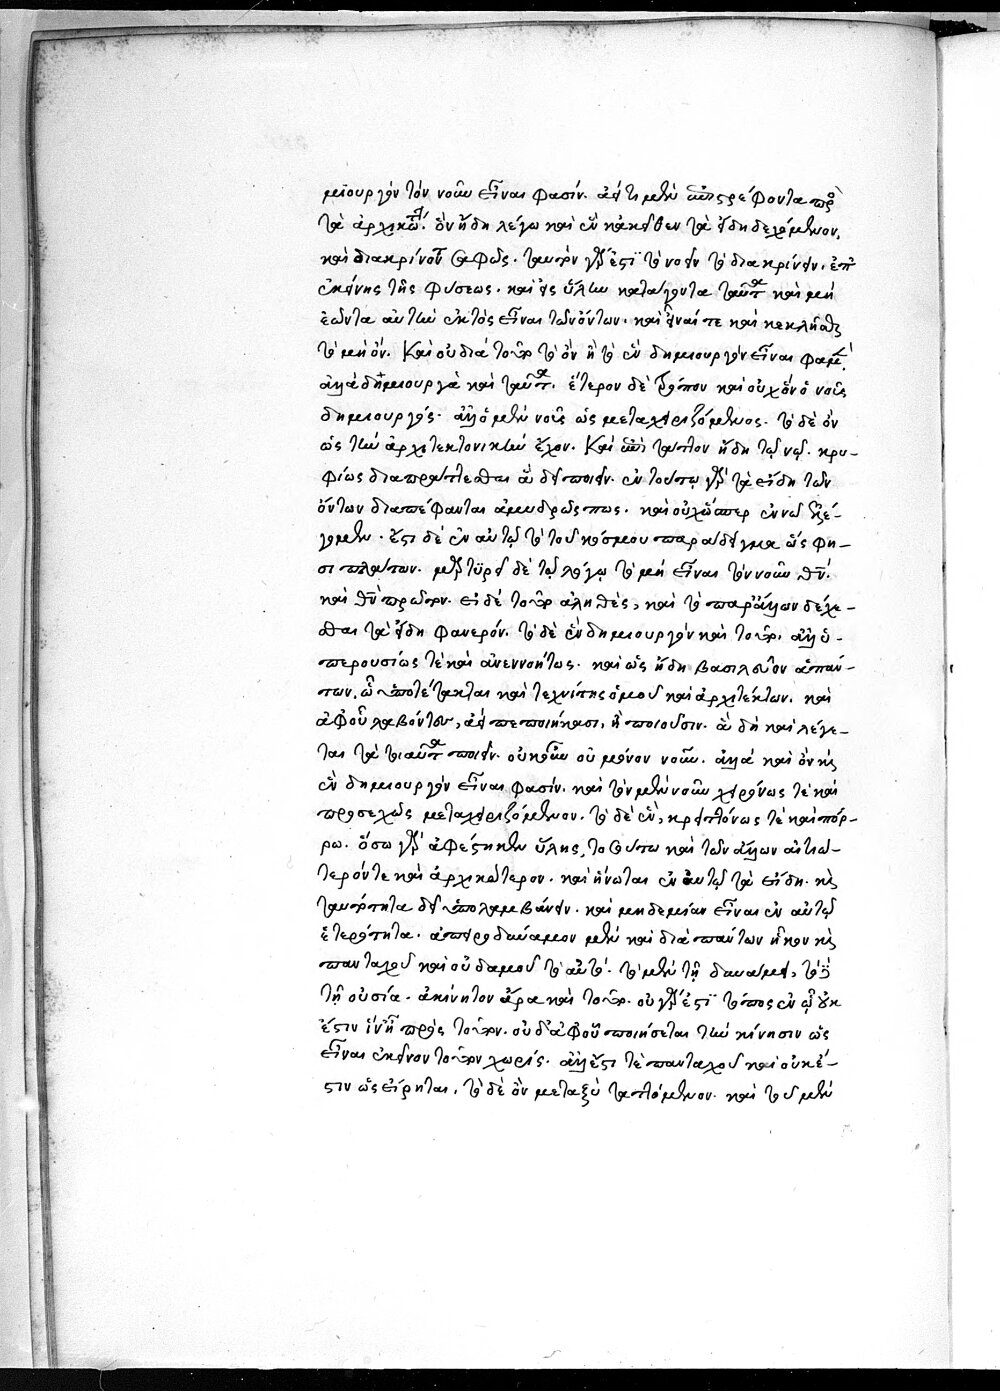 μϊουργὸν τὸν νοῦν εἶναι φασίν. ἀεὶ μὲν ἐπιστρέφοντα πρὸς
τὰ ἀρχικώτερα. ὃν ἤδη λέγω καὶ ἓν κἀκεῖθεν τὰ εἴδη δεχόμενον.
καὶ διακρίνοντα σαφῶς. ταυτὸν γάρ ἐστι τὸ νοεῖν τὸ διακρίνειν. ἐπ'
ἐκείνης τῆς φύσεως. καὶ εἰς ὕλην κατάγοντα ταῦτα καὶ μὴ
ἐῶντα αὐτὴν ἐκτὸς εἶναι τῶν ὄντων. καὶ εἶναί τε καὶ κεκλῆσθαι
τὸ μὴ ὄν. Καὶ οὐ διὰ τοῦτο τὸ ὂν ἢ τὸ ἓν δημιουργὸν εἶναι φαμέν.
ἀλλὰ δημιουργὰ καὶ ταῦτα. ἕτερον δὲ τρόπον καὶ οὐχ ὃν ὁ νοῦς
δημιουργός. ἀλλ' ὁ μὲν νοῦς ὡς μεταχειριζόμενος. τὸ δὲ ὂν
ὡς τὴν ἀρχιτεκτονικὴν ἔχον. Καὶ ἐπιτάττον ἤδη τῷ νῷ. κρυ-
φίως διαπράττεσθαι ἃ δεῖ ποιεῖν. ἐν τούτῳ γὰρ τὰ εἴδη τῶν
ὄντων διαπέφανται ἀμυδρῶς πως. καὶ οὐχ ὥσπερ ἐν νῷ ἐλέ-
γομεν. ἔτι δὲ ἐν αὐτῷ τὸ τοῦ κόσμου παράδειγμα ὥς φη-
σι πλάτων. μαρτυρεῖ δὲ τῷ λόγῳ τὸ μὴ εἶναι τὸν νοῦν θν.
καὶ θν πρῶτον. εἰ δὲ τοῦτο ἀληθές, καὶ τὸ παρ' ἄλλων δέχε-
σθαι τὰ εἴδη φανερόν. τὸ δὲ ἓν δημιουργὸν καὶ τοῦτο. ἀλλ' ὑ-
περουσίως τὲ καὶ ἀνεννοήτως. καὶ ὡς ἤδη βασιλεῦον ἁπάν-
των. ᾧ ὑποτέτακται καὶ τεχνίτης ὁμοῦ καὶ ἀρχιτέκτων. καὶ
ἀφ' οὗ λαβόντες, ἀεὶ πεποιήκασι, ἢ ποιοῦσιν. ἃ δὴ καὶ λέγε-
ται τὰ τοιαῦτα ποιεῖν. οὐκοῦν οὐ μόνον νοῦν. ἀλλὰ καὶ ὂν καὶ
ἓν δημιουργὸν εἶναι φασίν. καὶ τὸν μὲν νοῦν χειρόνως τὲ καὶ
προσεχῶς μεταχειριζόμενον. τὸ δὲ ἓν, κρειττόνως τὲ καὶ πόρ-
ρω. ὅσῳ γὰρ ἀφέστηκεν ὕλης, τοσούτῳ καὶ τῶν ἄλλων αἰτιώ-
τερόν τε καὶ ἀρχικώτερον. καὶ ἥνωται ἐν αὐτῷ τὰ εἴδη. καὶ
ταυτότητα δεῖ ὑπολαμβάνειν. καὶ μηδεμίαν εἶναι ἐν αὐτῷ
ἑτερότητα. ἀπειροδύναμον μὲν καὶ διὰ πάντων ἧκον καὶ
πανταχοῦ καὶ οὐδαμοῦ τὸ αὐτό. τὸ μὲν τῇ δυνάμει, τὸ δὲ
τῇ οὐσίᾳ. ἀκίνητον ἄρα καὶ τοῦτο. οὐ γάρ ἐστι τόπος ἐν ᾧ οὐκ
ἔστιν ἵν' ᾖ πρὸς τοῦτον. οὐδ' ἀφ' οὗ ποιήσεται τὴν κίνησιν ὡς
εἶναι ἐκεῖνον τοῦτον χωρίς. ἀλλ' ἔστι τὲ πανταχοῦ καὶ οὐκ ἔ-
στιν ὡς εἴρηται. τὸ δὲ ὂν μεταξὺ ταττόμενον. καὶ τοῦ μὲν